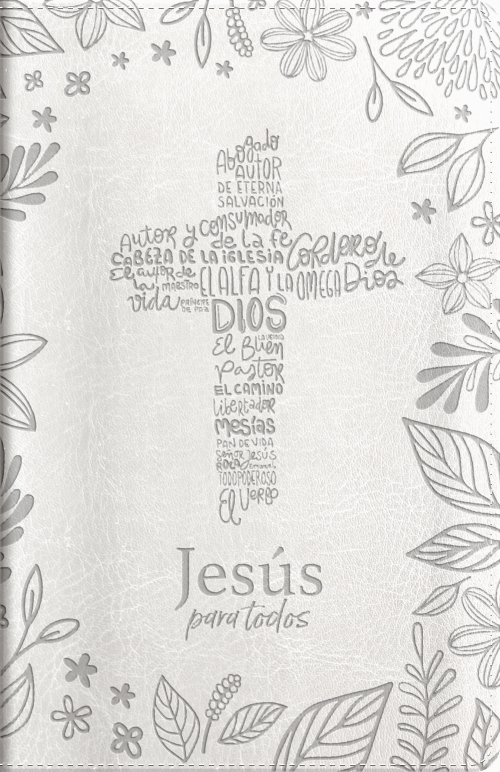 Abogado
AUTOR
DE ETERNA
SALVACIÓN
Autor y consumador
de la fe
CABEZA DE LA IGLESIA
Cordero de Dios
El autor de
la vida
MAESTRO
PRÍNCIPE
DE PAZ
EL ALFA Y LA OMEGA
DIOS
El Buen
Pastor
EL CAMINO
libertador
mesías
PAN DE VIDA
Señor Jesús
ROCA Emanuel
TODOPODEROSO
El Verbo
Jesús
para todos